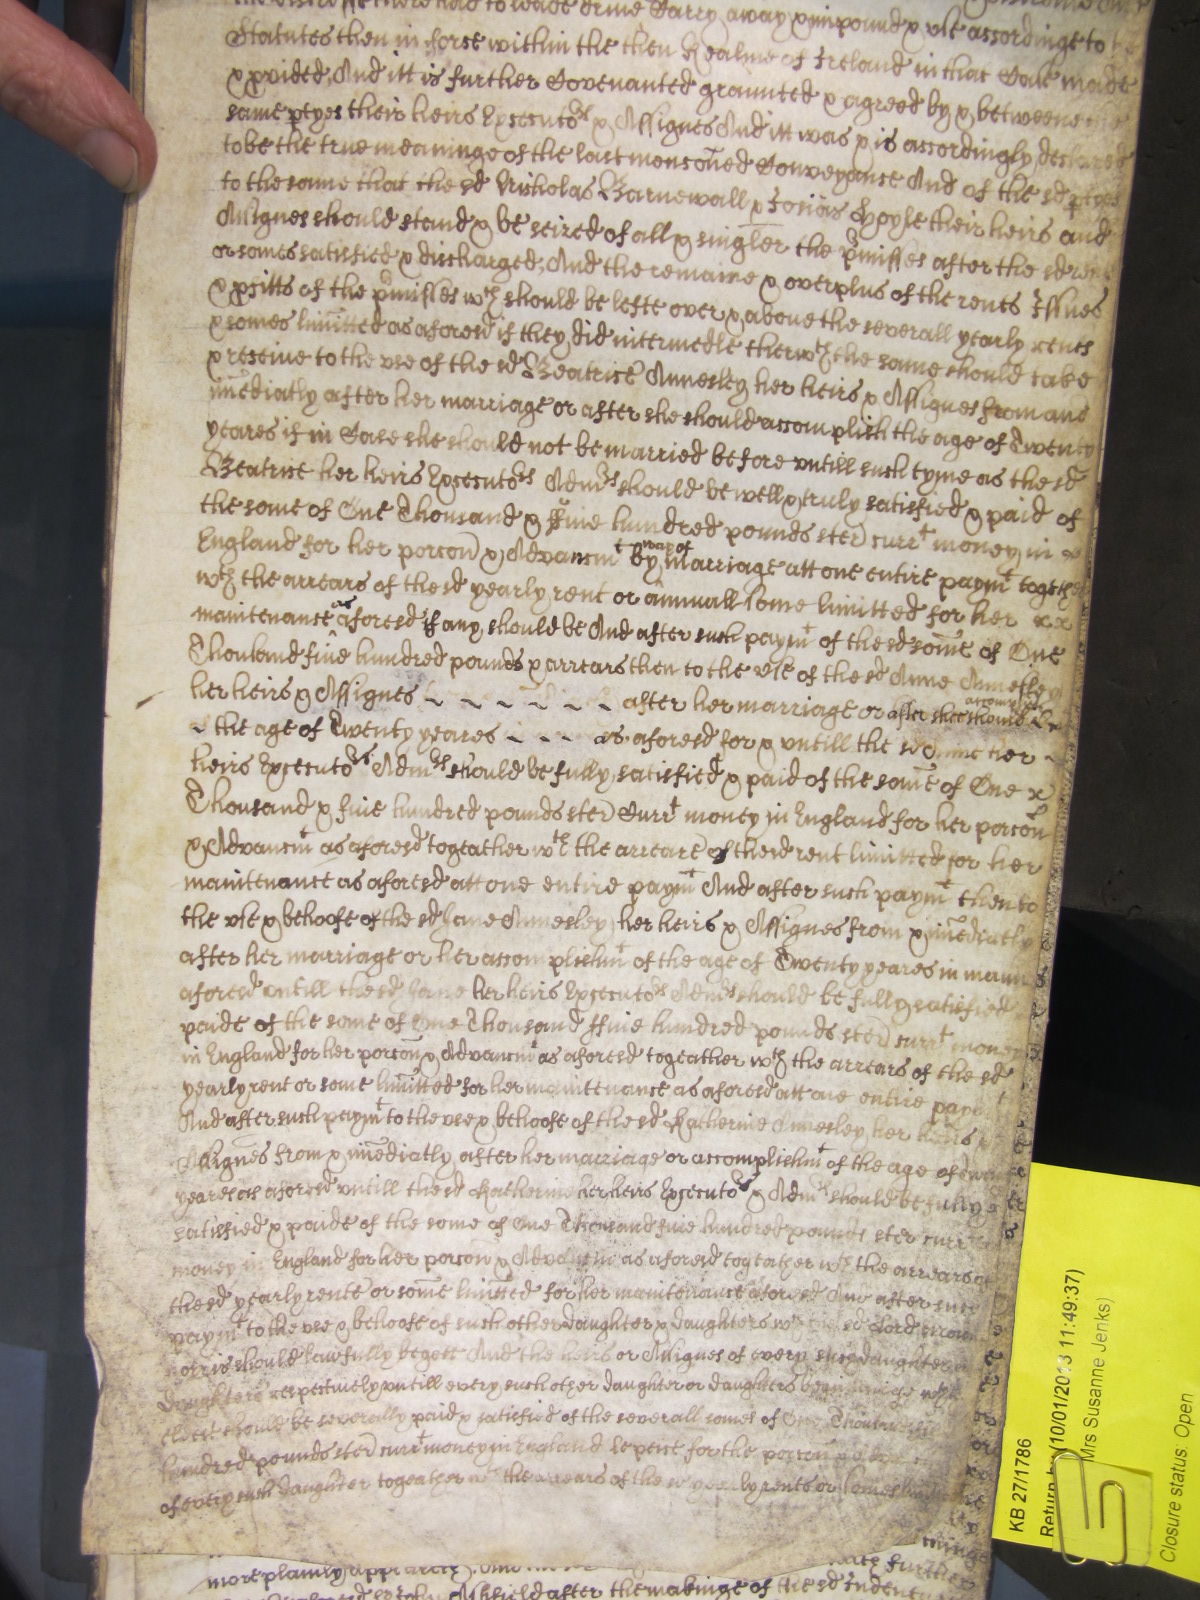 there had to leade drive Carry away & impound & use accordinge to
Statutes then in force within the then Realme of Ireland in that Case made
& pvided, And itt is further Covenanted graunted & agreed by & betweene
same ptyes their heirs Executors & Assignes And itt was & is accordingly declared
to be the true meaninge of the last menconed Conveyance And of the sd ptyes
to the same that the sd Nicholas Barnewall & Josias Hoyle their heirs and
Assignes should stand & be seized of all & singler the pmisses after the sd rents
or somes satisfied & discharged, And the remaine & overplus of the rents Issues
& pfitts of the pmisses wch should be lefte over & above the severall yearly rents
& somes limitted as aforesd if they did intermedle therwth the same should take
& receive to the use of the sd Beatrice Annesley her heirs & Assignes from and
imediatly after her marriage or after she should accomplish the age of Twenty
yeares if in Case she should not be married before untill such tyme as the sd
Beatrice her heirs Executors Admrs should be well & truly satisfied & paid of
the some of One Thousand & ffive hundred pounds ster currt money in
England for her porcon & Advancmt by way of marriage att one entire paymt together
wth the arrears of the sd yearly rent or annuall some limitted for her xx
maintenance as aforesd if any should be And after such paymt of the sd some of One
Thousand five hundred pounds & arrears then to the use of the sd Anne Annesley
her heirs & Assignes ~ ~ ~ ~ ~ ~ ~ after her marriage or after shee should accomplish
~ the age of Twenty yeares ~ ~ ~ ~ as aforesd for & untill the sd Anne her ~
heirs Executors Admrs should be fully satisfied & paid of the some of One x
Thousand & five hundred pounds ster Currt money in England for her porcon
& Advancmt as aforesd togeather wth the arreare of the sd rent limitted for her
maintenance as aforesd att one entire paymt And after such paymt then to
the use & behoofe of the sd Jane Annesley her heirs & Assignes from & imediatly
after her marriage or her accomplishmt of the age of Twenty yeares in mann
aforesd untill the sd Jane her heirs Executors Admrs should be fully satisfied
paide of the some of One Thousand ffive hundred pounds ster currt money
in England for her porcon & Advancmt as aforesd togeather wth the arrears of the sd
yearly rent or some limitted for her maintenance as aforesd att one entire paymt
And after such paymt to the use & behoofe of the sd Katherine Annesley her heirs &
Assignes from & imediatly after her marriage or accomplishmt of the age of Twenty
yeares as aforesd untill the sd Katherine her heirs Executors & Admrs should be fully
satisfied & paide of the some of One Thousand five hundred pounds ster currt
money in England for her porcon & Advancmt as aforesd togeather wth the arrears
the sd yearly rente or some limitted for her maintenance aforesd And after such
paymt to the use & behoofe of such other daughter & daughters wch the sd Lord
should lawfully begett And the heirs or Assignes of every such daughter or
Daughters respectively untill every such other daughter or daughters beginninge wth
eldest should be severally paid & satisfied of the severall somes of One Thousand
hundred pounds ster currt money in England le peice for the porcon
of every such daughter togeather wth the arrears of the yearly rents or somes
more plainly appeareth
Ashfield after the makinge of the sd Indenture
KB 27/1786
Return (10/01/2013 11:49:37)
Mrs Susanne Jenks)
Closure status: Open